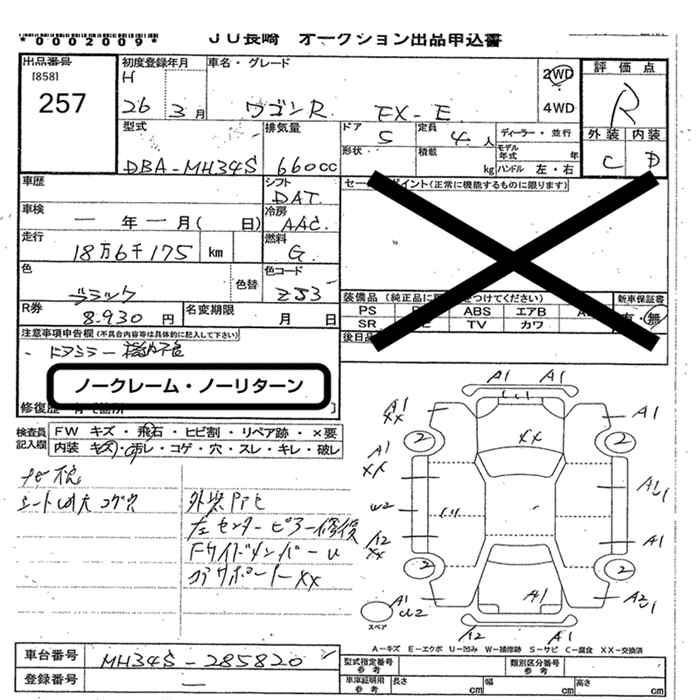 *0002009* JU長崎 オークション出品申込書
出品番号 初度登録年月 車名・グレード 評価点
[858] H 2WD
257 26 3月 ワゴンR FX-E 4WD R
型式 排気量 ドア 5 定員 4人 ディーラー・並行 外装 内装
形状 積載 kg モデル年式 年
DBA-MH34S 660cc ハンドル 左・右 C D
車歴 シフト DAT セールスポイント(正常に機能するものに限ります)
車検 一年一月( 日) 冷房 AAC
走行 18万6千175 km 燃料 G
色 ブラック 色替 色コード ZJ3
装備品 (純正品に をつけてください) 新車保証書
R券 8.930円 名変期限 月 日 PS ABS エアB 有・無
SR TV カワ
注意事項申告欄(不具合内容等は具体的に記入して下さい) 後日品
・ドアミラー
ノークレーム・ノーリターン
修復歴
検査員記入欄 FW キズ・飛石・ヒビ割・リペア跡・×要
内装 キズ・汚レ・コゲ・穴・スレ・キレ・破レ
ナビ
シート
外装
左センターピラー修復
Fサイドメンバーu
コアサポートXX
A1 A1
A1 XX A1
2 XX 2
A1 XX A2 1
u2
A2 XX A1
2 2
A1 u2 A1 A2 1
スペア A2 A1
A-キズ E-エクボ U-凹ミ W-補修跡 S-サビ C-腐食 XX-交換済
車台番号 MH34S-285820 型式指定番号参考 類別区分番号参考
登録番号 一 車庫証明用参考 長さ cm 幅 cm 高さ cm